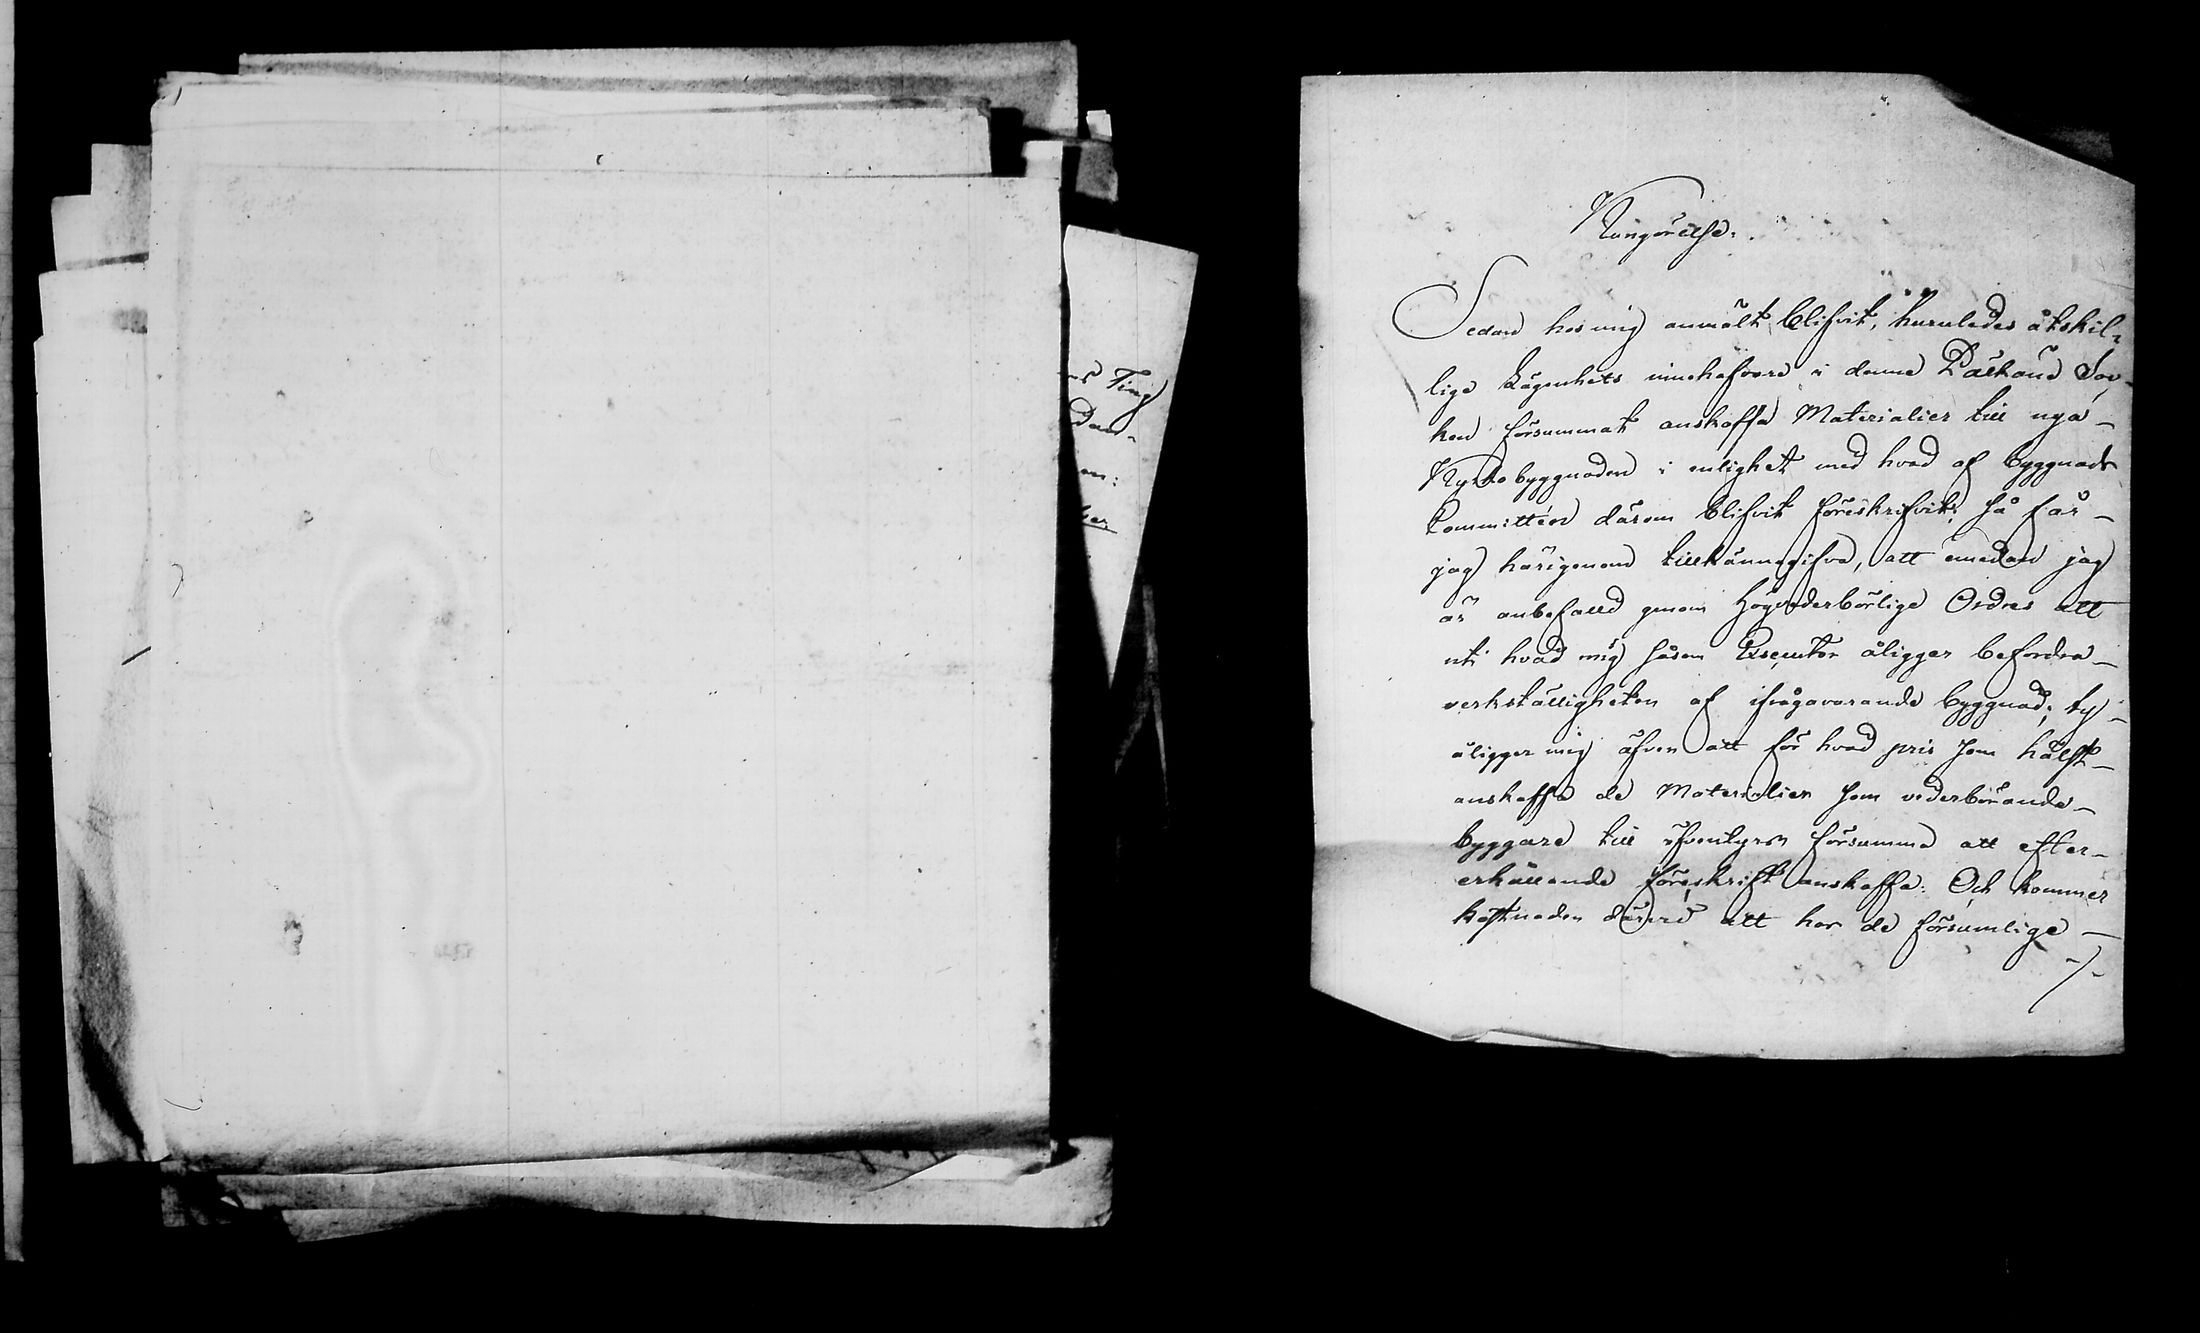 rs Ting
Dan-
en:
ber
Kungörelse.
Sedan hos mig anmält blifvit, huruledes åtskil-
lige Lägenhets innehafvare i denne Pälkäne Soc-
ken försummat anskaffa Materialier till nya
Kyrko byggnaden i enlighet med hvad af byggnads
Committéen därom blifvit föreskrifvit; så får
jag härigenom tillkännagifva, att emedan jag
är anbefalld genom Högvederbörlige Ordres att
uti hvad mig såsom Executor åligger befordra
verkställigheten af ifrågavarande byggnad; ty
åligger mig äfven att för hvad pris som hälst
anskaffa de Materialier som vederbörande
byggare till äfventyrs försumma att efter
erhållande föreskrift anskaffa: Och kommer
kostnaden därvid att hos de försumlige
-/-